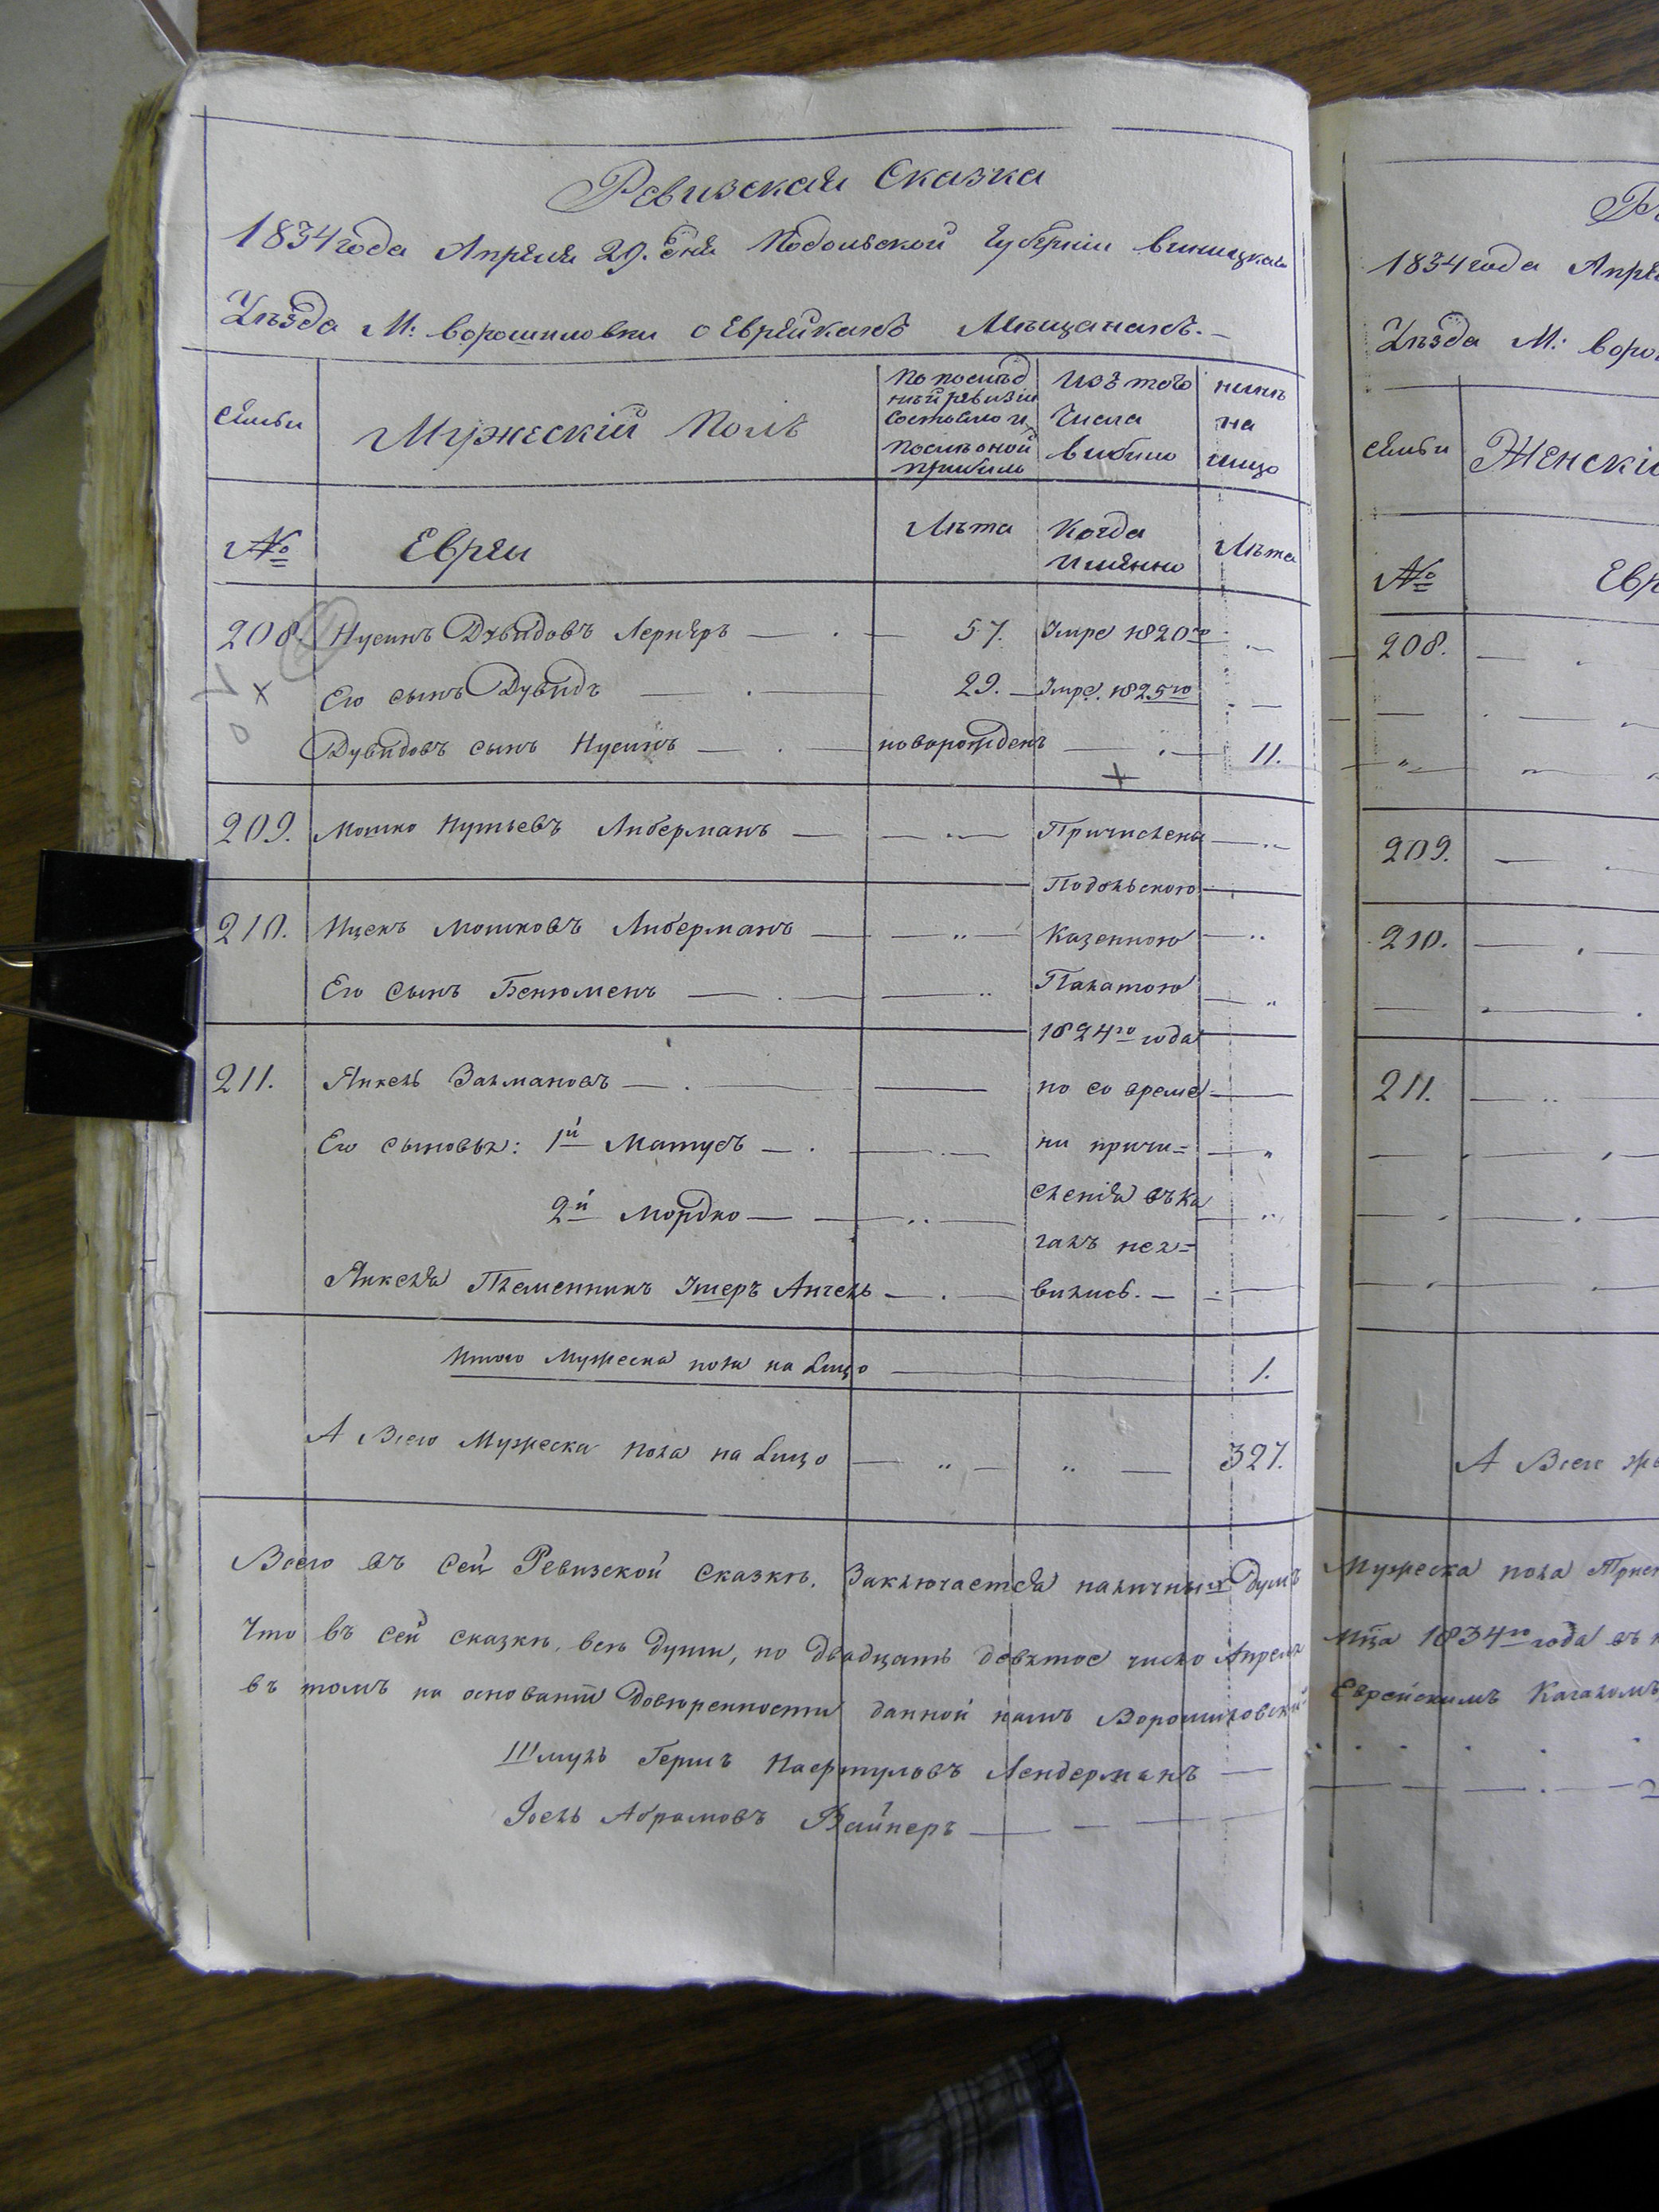 Ревизская Сказка
1834 года Апреля 29. дня Подольской Губерніи Виницкаго
Уѣзда М: Ворошиловки о Еврейкахъ Мѣщанахъ.
Семьи
Мужескій Полъ
По послѣд
ней ревизіи
состояло и
послѣ оной
прибыло
Изъ того
числа
выбыло
нынѣ
на
лицо
№
Евреи
Лѣта
Когда
именно
Лѣта
208. Нусинъ Дувидовъ Лернеръ — . — 57. Умре 1820го . —
Его сынъ Дувидъ — . — 29. — Умре. 1825го . —
Дувидовъ сынъ Нусинъ — . — новорожденъ — . — 11.
209. Мошко Нутьевъ Либерманъ — — .. — Причислены — .. —
Подольскою
210. Ицекъ Мошковъ Либерманъ — — .. — Казенною — ..
Его сынъ Бенюменъ — . — — .. Палатою — ..
1824го года
211. Янкель Залмановъ — . — — но со време —
Его сыновья: 1й Матусъ — . — .. — ни причи= — „
2й Мордко — — .. — сленія въ ка — ..
галъ неяв=
Янкеля Племенникъ Умеръ Ангель — . — вились. — . —
Итого Мужеска пола на лицо — 1.
А Всего Мужеска пола на лицо — .. — .. — 327.
Всего въ сей Ревизской сказкѣ. Заключается наличныхъ Душъ
Что въ сей сказкѣ, всѣ души, по двадцать девятое число Апреля
въ томъ на основаніи довѣренности данной намъ Ворошиловскимъ
Шмуль Гершъ Нафтуловъ Лендерманъ —
Іосль Абрамовъ Вайнеръ — — —
1834 года
Уѣзда М:
Семьи
№
208.
209.
210.
211.
А Всего
Мужеска пола
мца 1834го года въ
Еврейскимъ Кагаломъ